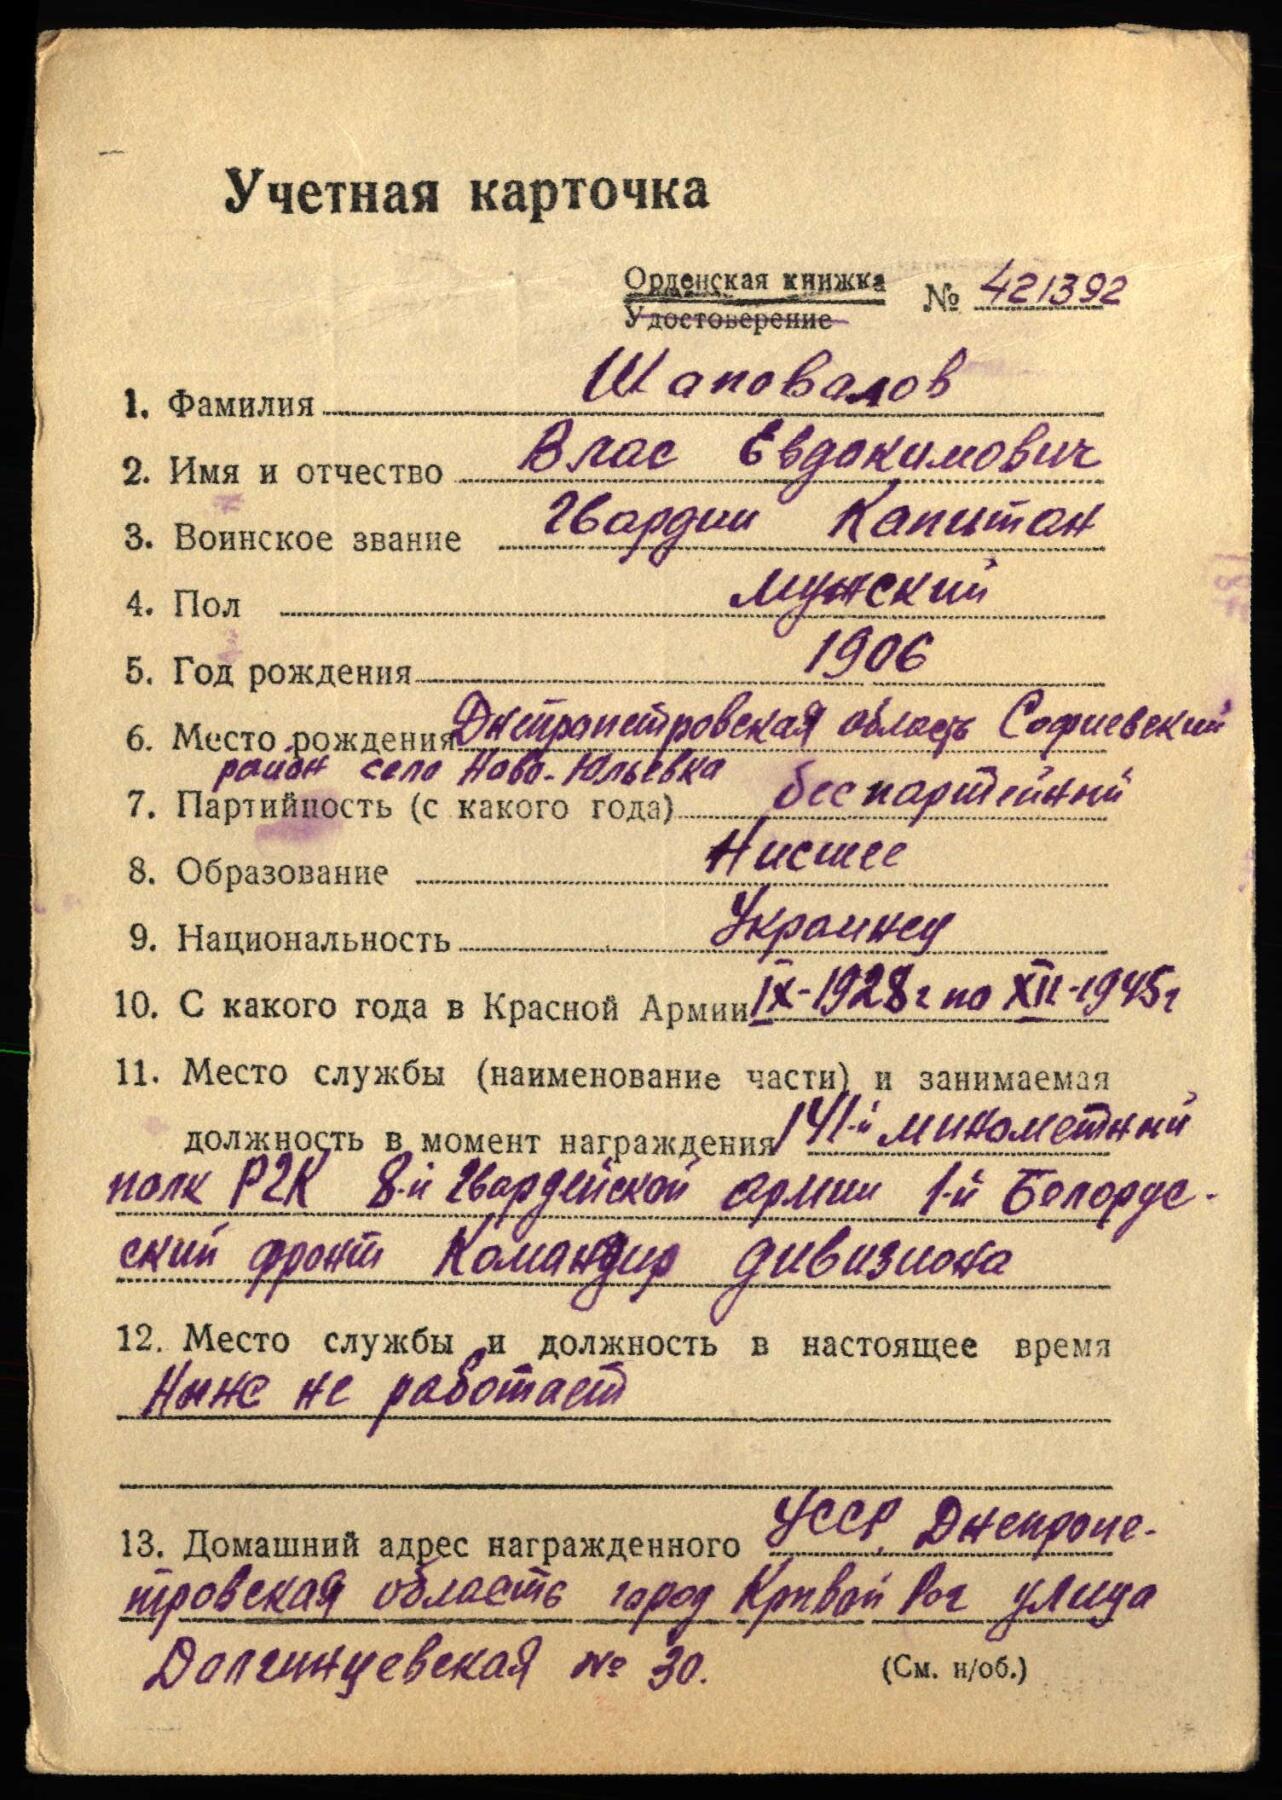 Учетная карточка
Орденская книжка № 421392
Удостоверение
1. Фамилия Шаповалов
2. Имя и отчество Влас Евдокимович
3. Воинское звание Гвардии Капитан
4. Пол мужский
5. Год рождения 1906
6. Место рождения Днепропетровская область Софиевский
район село Ново-Юльевка
7. Партийность (с какого года) беспартейный
8. Образование Нисшее
9. Национальность Украинец
10. С какого года в Красной Армии IX-1928г по XII-1945г
11. Место службы (наименование части) и занимаемая
должность в момент награждения 141-й минометный
полк РГК 8-й Гвардейской армии 1-й Белорус-
ский фронт Командир дивизиона
12. Место службы и должность в настоящее время
Ныне не работает
13. Домашний адрес награжденного УССР, Днепропе-
тровская область город Кривой Рог улица
Долгинцевская № 30. (См. н/об.)